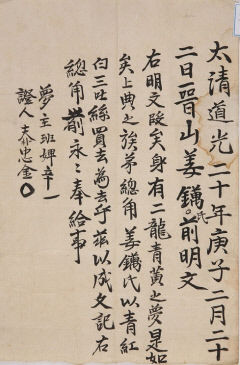 太清道光二十年庚子二月二十
二日晉山姜鏋氏前明文
右明文段矣身有二龍青黃之夢是如
矣上典之族弟總角姜鏋氏以青紅
白三吐絲買去為去乎茲以成文記右
總角前永〻奉給事
夢主班婢辛一
證人 泰忠金